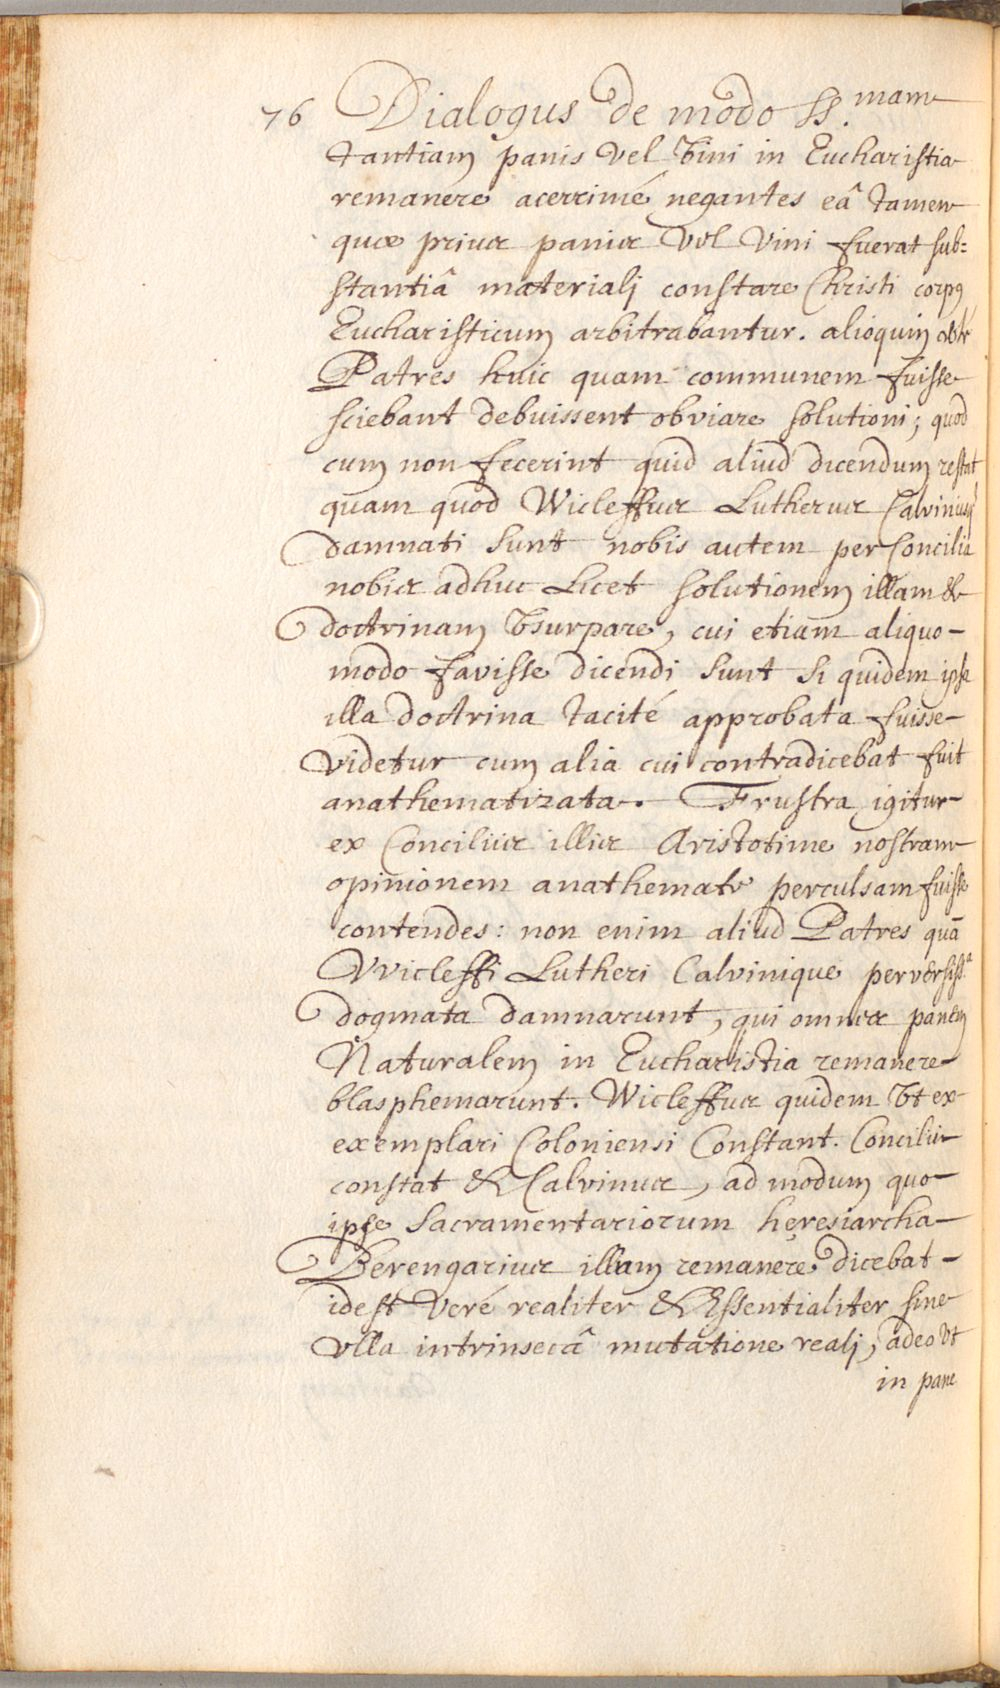 76 Dialogus de modo SS.mam
tantiam panis vel Vini in Eucharistia
remanere acerrimé negantes eâ tamen
quæ prius panis vel Vini fuerat sub=
stantiâ materiali constare Christi corpꝰ
Eucharisticum arbitrabantur. alioquin
Patres huic quam communem fuisse
sciebant debuissent obviare solutioni; quod
cum non fecerint quid aliud dicendum restat
quam quod Wicleffus Lutherus Calvinusqꝫ
damnati sunt nobis autem per Concilia
nobis adhuc Licet solutionem illam &
doctrinam Vsurpare, cui etiam aliquo-
modo favisse dicendi sunt si quidem ipse
illa doctrina tacité approbata fuisse
videtur cum alia cui contradicebat fuit
anathematizata. Frustra igitur
ex Conciliis illis Aristotime nostram
opinionem anathemate perculsam fuisse
contendes: non enim aliud Patres quā
VVicleffi Lutheri Calvinique perversiss.a
dogmata damnarunt, qui omnes panem
Naturalem in Eucharistia remanere
blasphemarunt. Wicleffus quidem Vt ex
exemplari Coloniensi Constant. Concilii
constat & Calvinus, ad modum quo
ipse Sacramentariorum hęresiarcha
Berengarius illam remanere dicebat
idest veré realiter & Essentialiter sine
vlla intrinsecâ mutatione reali, adeo Vt
in pane